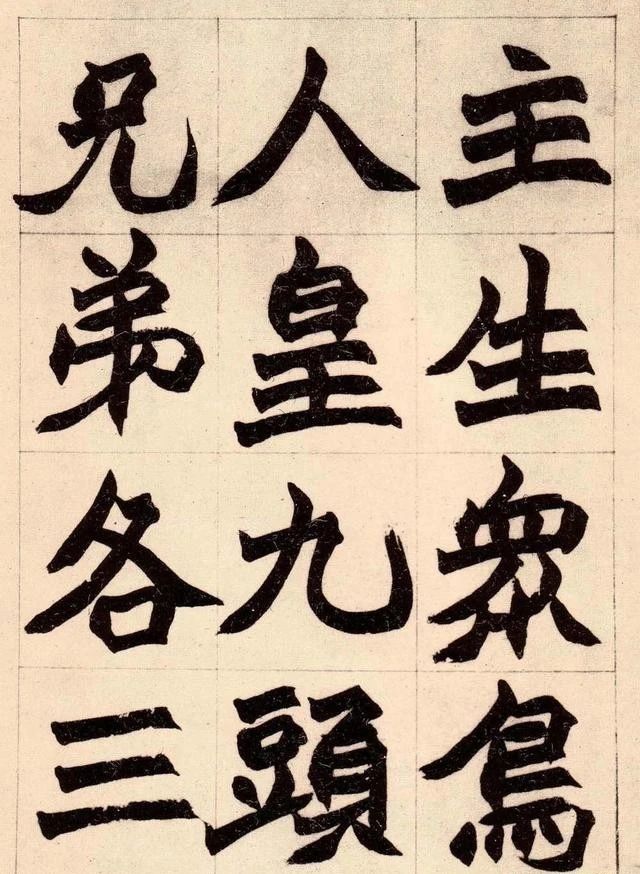 主生眾鳥
人皇九頭
兄弟各三